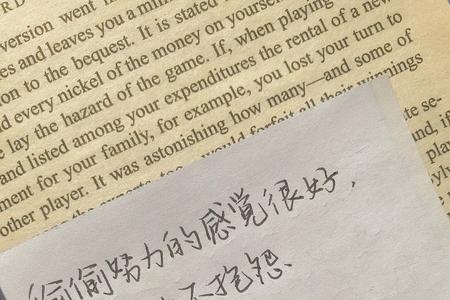 RD
version went
es and leaves you a mill
on to the bequest. It is stated
d every nickel of the money on yourse
e lay the hazard of the game. If, when playing
and listed among your expenditures the rental of a new
ment for your family, for example, you lost your turn to
other player. It was astonishing how many—and some of
would forfeit all their winnings
te se-
nd, if
play
偷偷努力的感觉很好,
不抱怨、